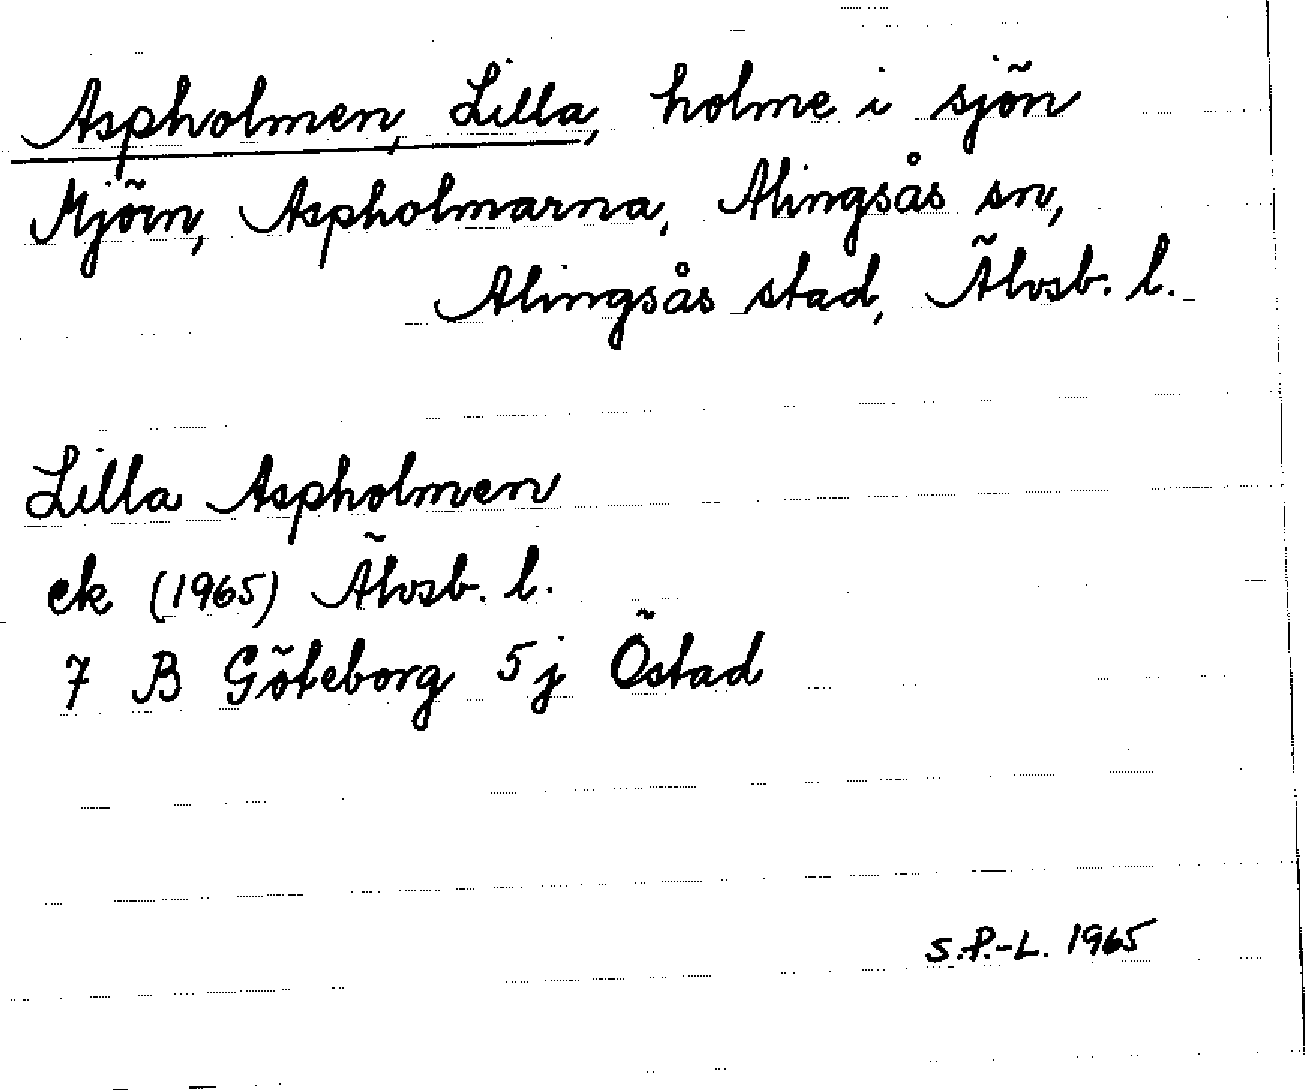 Aspholmen, Lilla, holme i sjön
Mjörn, Aspholmarna, Alingsås sn,
Alingsås stad, Älvsb. l.
Lilla Aspholmen
ek (1965) Älvsb. l.
7 B Göteborg 5j Östad
S.P.-L. 1965